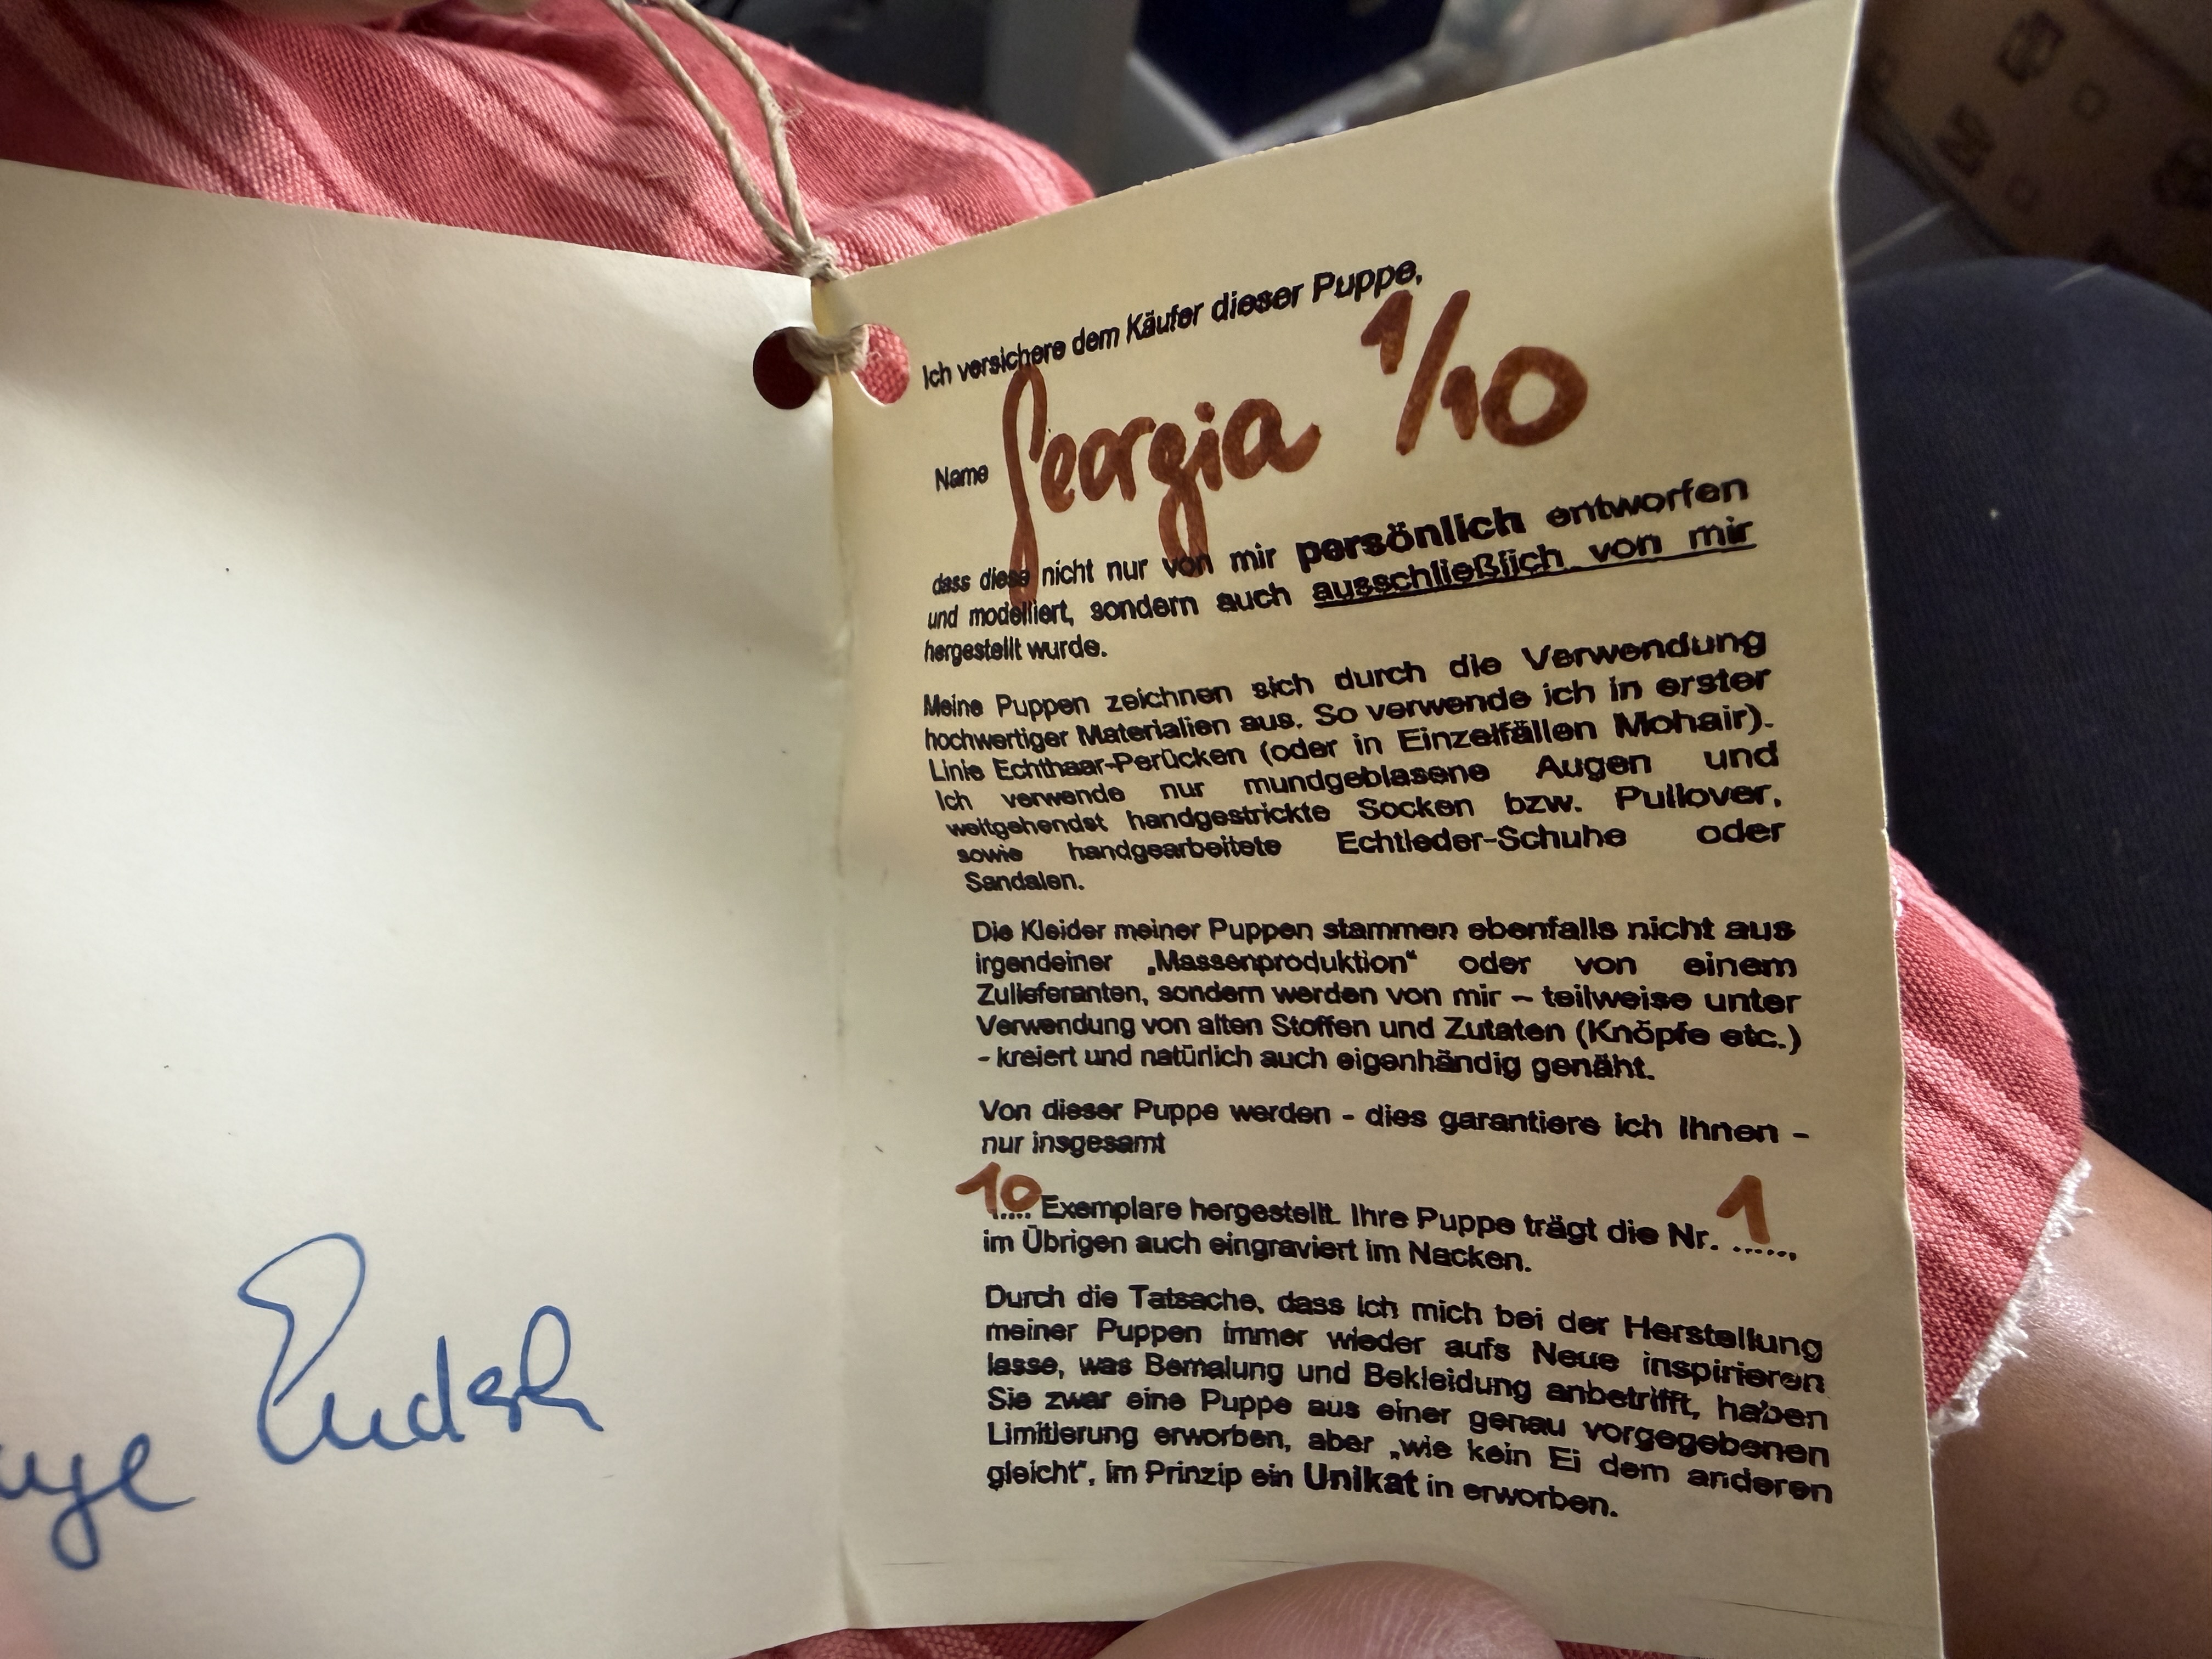 Ich versichere dem Käufer dieser Puppe,
Name Georgia 1/10
dass diese nicht nur von mir persönlich entworfen
und modelliert, sondern auch ausschließlich von mir
hergestellt wurde.
Meine Puppen zeichnen sich durch die Verwendung
hochwertiger Materialien aus. So verwende ich in erster
Linie Echthaar-Perücken (oder in Einzelfällen Mohair).
Ich verwende nur mundgeblasene Augen und
weitgehendst handgestrickte Socken bzw. Pullover,
sowie handgearbeitete Echtleder-Schuhe oder
Sandalen.
Die Kleider meiner Puppen stammen ebenfalls nicht aus
irgendeiner „Massenproduktion“ oder von einem
Zulieferanten, sondern werden von mir – teilweise unter
Verwendung von alten Stoffen und Zutaten (Knöpfe etc.)
- kreiert und natürlich auch eigenhändig genäht.
Von dieser Puppe werden - dies garantiere ich Ihnen -
nur insgesamt
10 Exemplare hergestellt. Ihre Puppe trägt die Nr. 1......,
im Übrigen auch eingraviert im Nacken.
Durch die Tatsache, dass ich mich bei der Herstellung
meiner Puppen immer wieder aufs Neue inspirieren
lasse, was Bemalung und Bekleidung anbetrifft, haben
Sie zwar eine Puppe aus einer genau vorgegebenen
Limitierung erworben, aber „wie kein Ei dem anderen
gleicht“, im Prinzip ein Unikat in erworben.